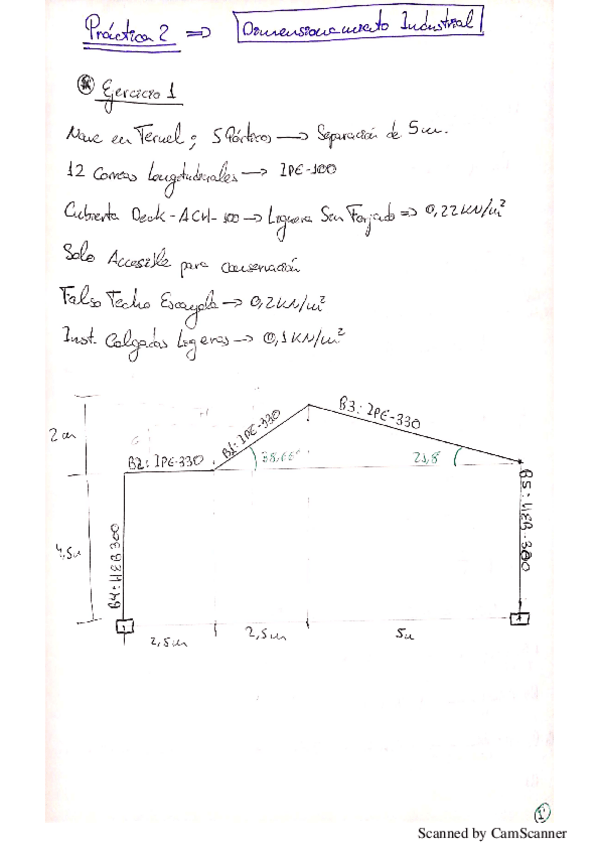 Práctica 2 => Dimensionamiento Industrial
Ejercicio 1
Nave en Teruel; 5 Pórticos → Separación de 5 m.
12 Correas Longitudinales → IPE-100
Cubierta Deck-ACH-100 → Ligera Sin Forjado => 0,22 KN/m²
Solo Accesible para conservación
Falso Techo Escayola → 0,2 KN/m²
Inst. Colgadas Ligeras → 0,1 KN/m²
B3: IPE-330
B1: IPE-330
2 m
B2: IPE-330
38,66°
21,8
B5: HEB-300
4,5 m
B4: HEB 300
2,5 m
2,5 m
5 m
1
Scanned by CamScanner